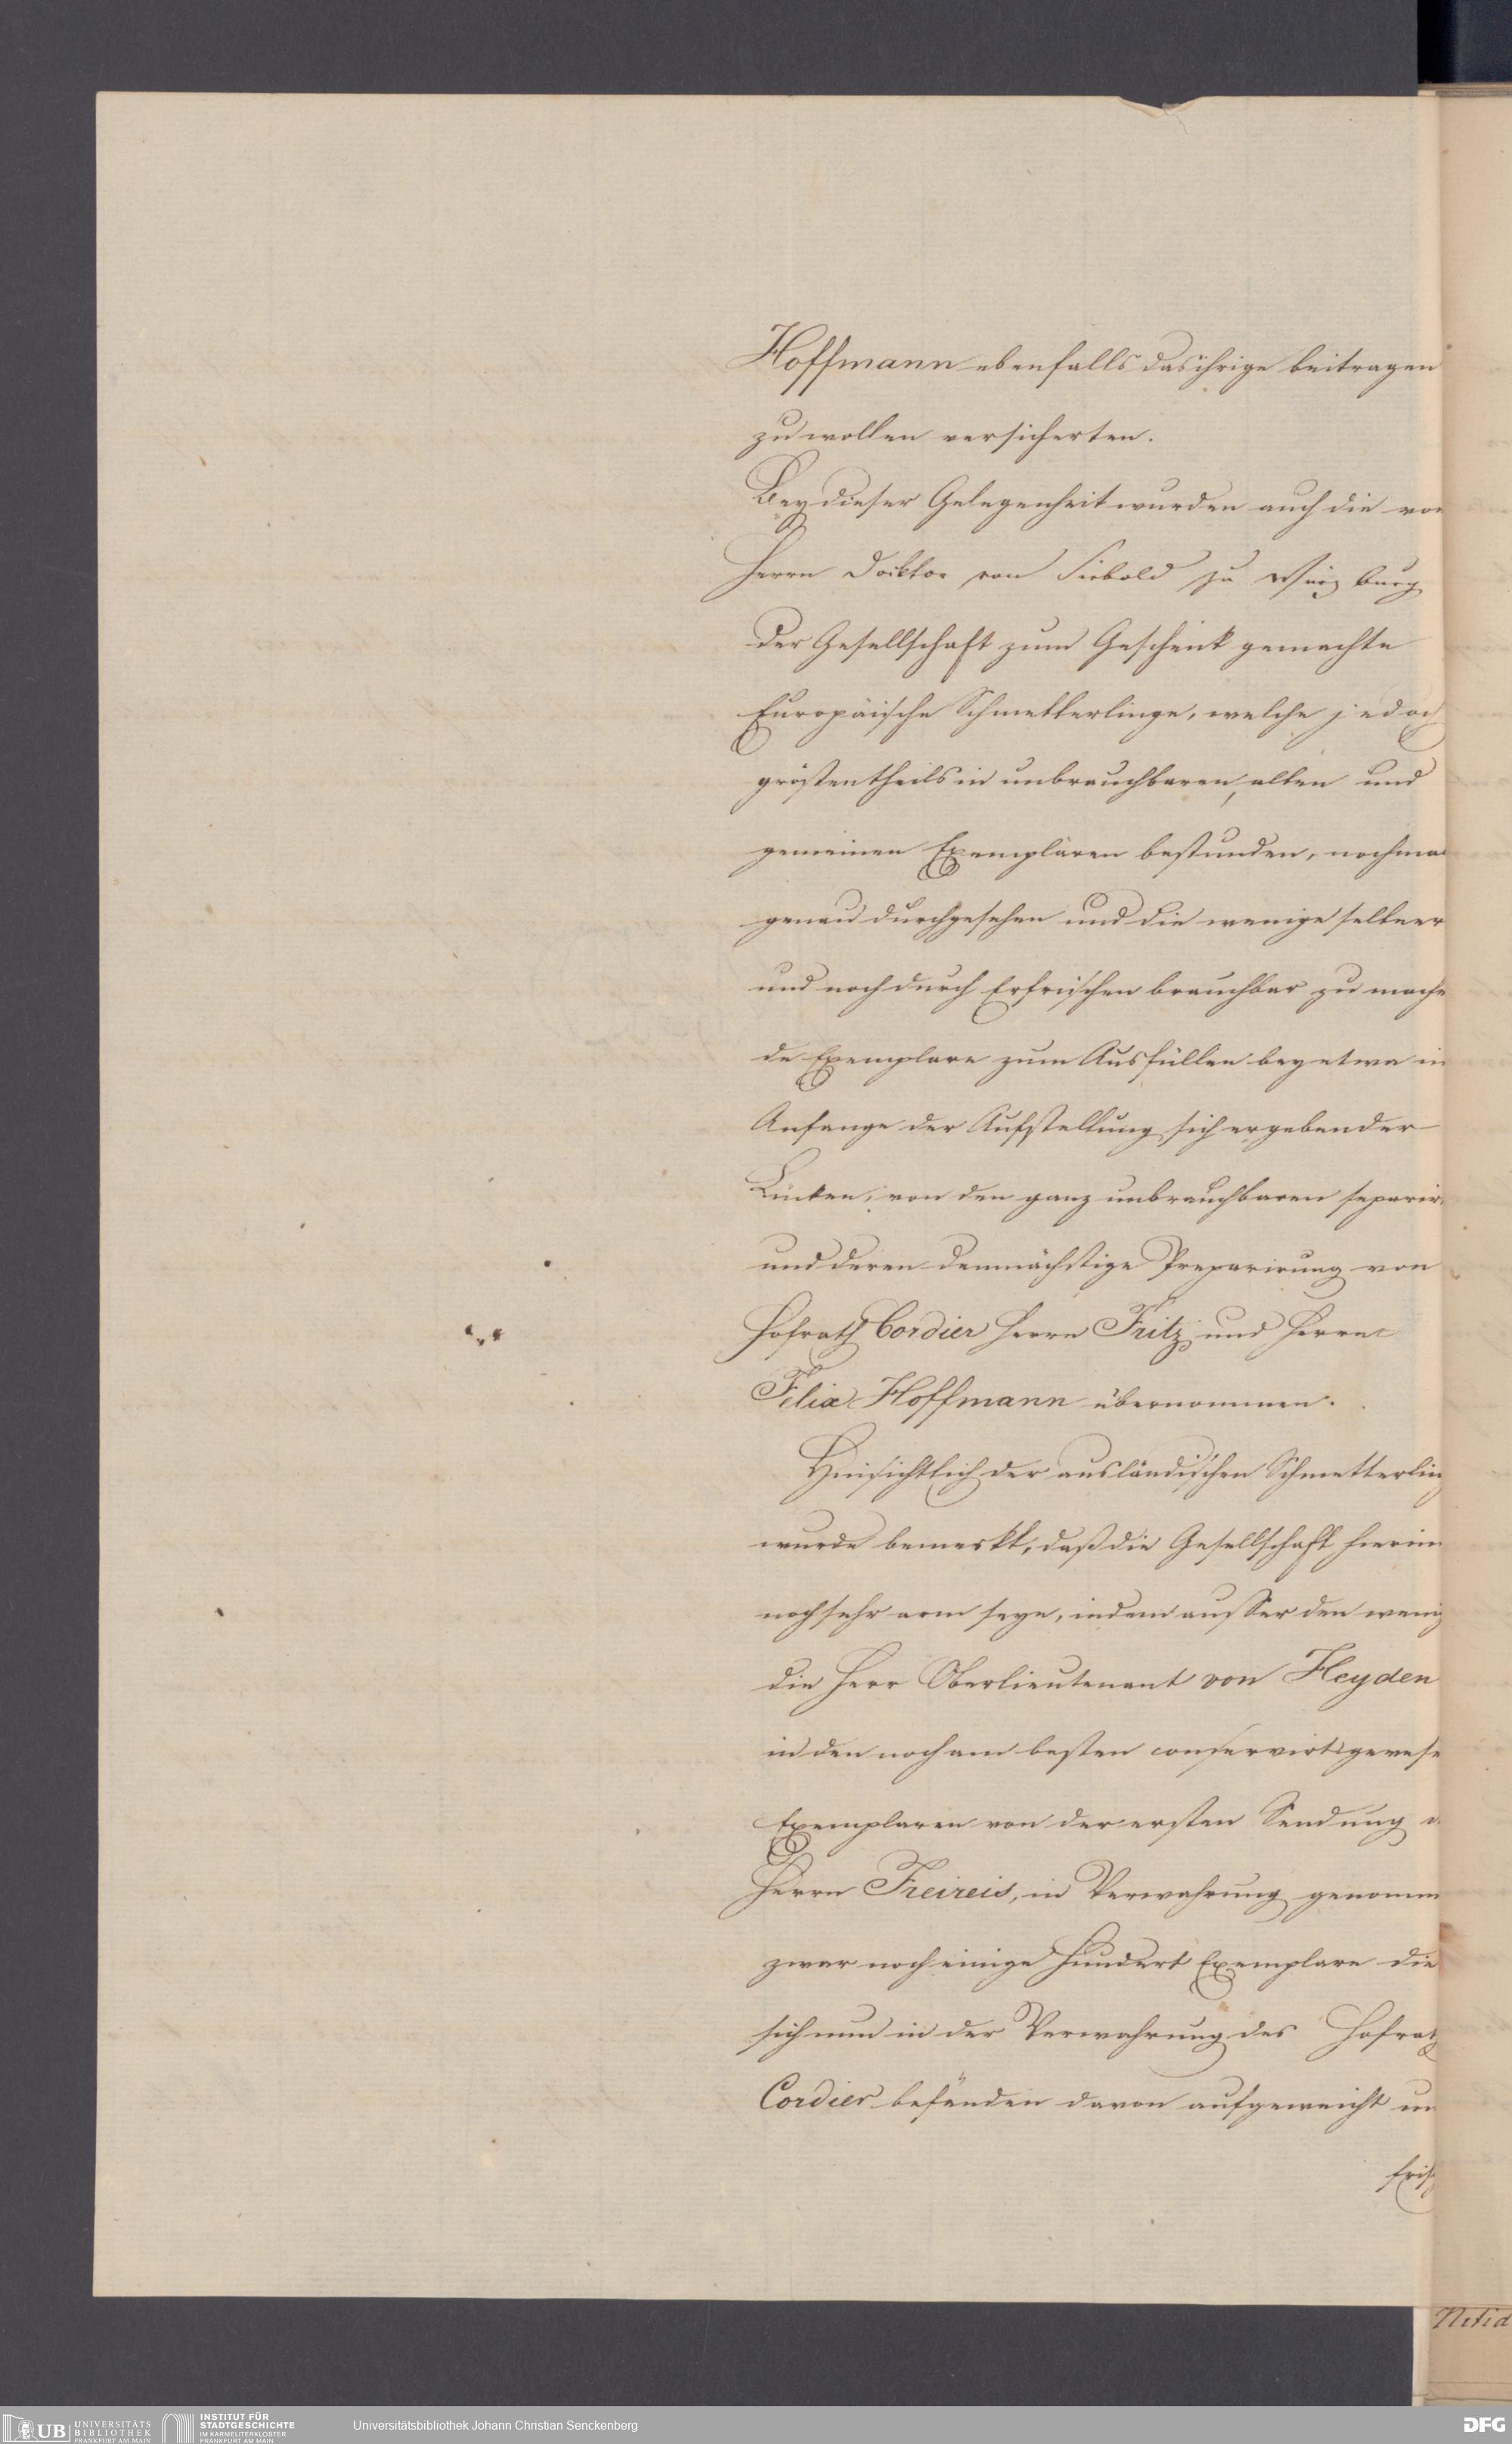 Hoffmann ebenfalls das ihrige beitragen
zu wollen versicherten.
Bey dieser Gelegenheit wurden auch die von
Herrn Docktor von Siebold zu Würzburg
der Gesellschaft zum Geschenk gemachte
Europäische Schmetterlinge, welche jedoch
gröstentheils in unbrauchbaren, alten und
gemeinen Exemplaren bestunden, nochma
genau durchgesehen und die wenige seltner
und noch durch Erfrischen brauchbar zu mache
de Exemplare zum Ausfüllen bey etwa im
Anfange der Aufstellung sich ergebender
Lücken, von den ganz unbrauchbaren separirt
und deren demnächstige Preparirung von
Hofrath Cordier Herrn Fritz und Herrn
Felix Hoffmann übernommen.
Hinsichtlich der ausländischen Schmetterling
wurde bemerkt, daß die Gesellschaft hierin
noch sehr arm seye, indem ausser den wenig
die Herr Oberlieutenant von Heyden
in den noch am besten conservirt gewese
Exemplaren von der ersten Sendung d
Herrn Freireis, in Verwahrung genomm
zwar noch einige hundert Exemplare die
sich nun in der Verwahrung des Hofrath
Cordier befänden davon aufgeweicht un
frisch
Nitid
UB UNIVERSITÄTS
BIBLIOTHEK
FRANKFURT AM MAIN
INSTITUT FÜR
STADTGESCHICHTE
IM KARMELITERKLOSTER
FRANKFURT AM MAIN
Universitätsbibliothek Johann Christian Senckenberg
DFG